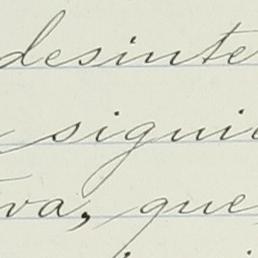 desinte
signi
va, que